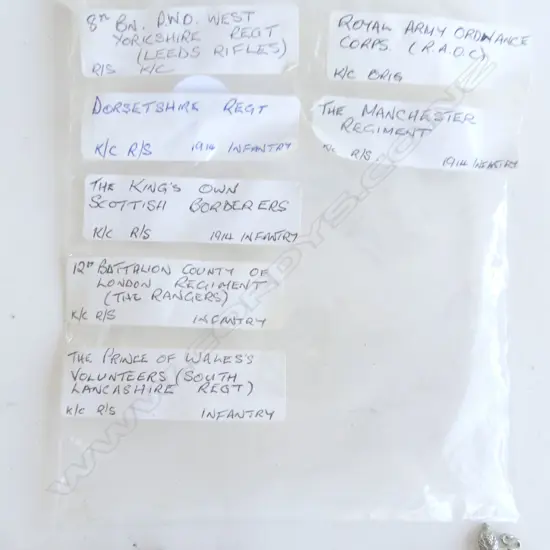 8TH BN. P.W.O. WEST
YORKSHIRE REGT
(LEEDS RIFLES)
R/S K/C
DORSETSHIRE REGT
K/C R/S 1914 INFANTRY
THE KING'S OWN
SCOTTISH BORDERERS
K/C R/S 1914 INFANTRY
12TH BATTALION COUNTY OF
LONDON REGIMENT
(THE RANGERS)
K/C R/S INFANTRY
THE PRINCE OF WALES'S
VOLUNTEERS (SOUTH
LANCASHIRE REGT)
K/C R/S INFANTRY
ROYAL ARMY ORDNANCE
CORPS. (R.A.O.C)
K/C ORIG
THE MANCHESTER
REGIMENT
K/C R/S 1914 INFANTRY